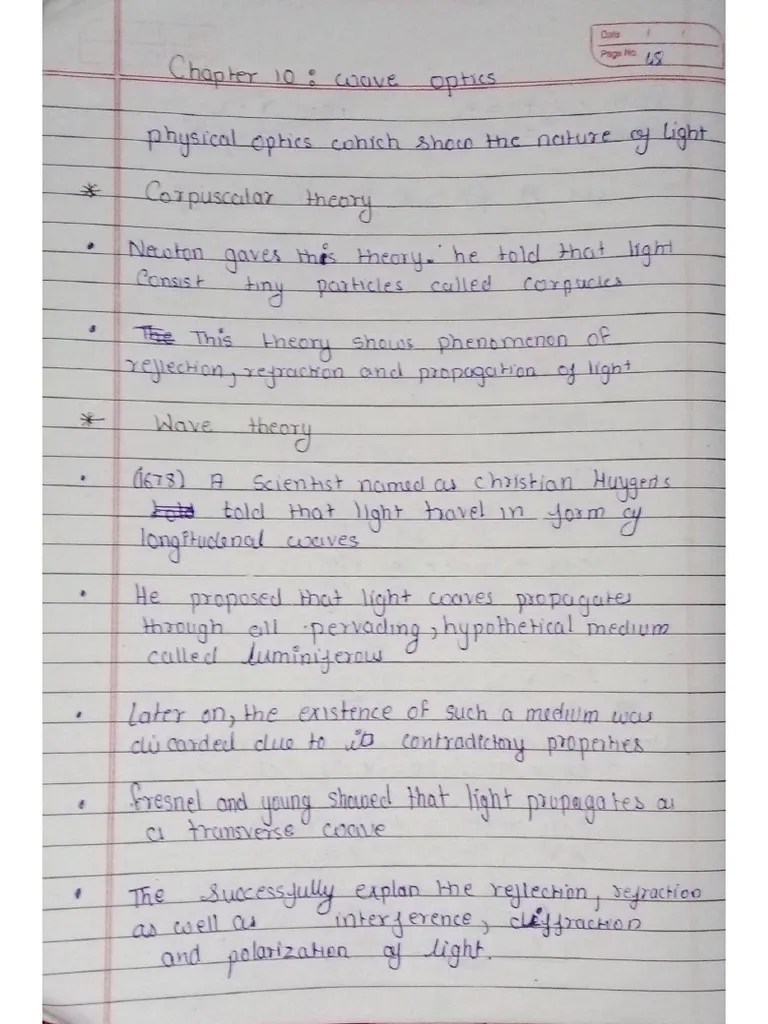 Date / /
Page No. 68
Chapter 10: wave optics
physical optics which show the nature of light
* Corpuscalar theory
• Newton gaves this theory. he told that light
Consist tiny particles called corpucles
• The This theory shows phenomenon of
reflection, refraction and propagation of light
* Wave theory
• (1678) A Scientist named as Christian Huygens
told told that light travel in form of
longitudenal waves
• He proposed that light waves propagates
through all pervading, hypothetical medium
called luminiferous
• Later on, the existence of such a medium was
discarded due to its contradictory properties
• fresnel and young showed that light propagates as
a transverse wave
• The Successfully explan the reflection, refraction
as well as interference, diffraction
and polarization of light.